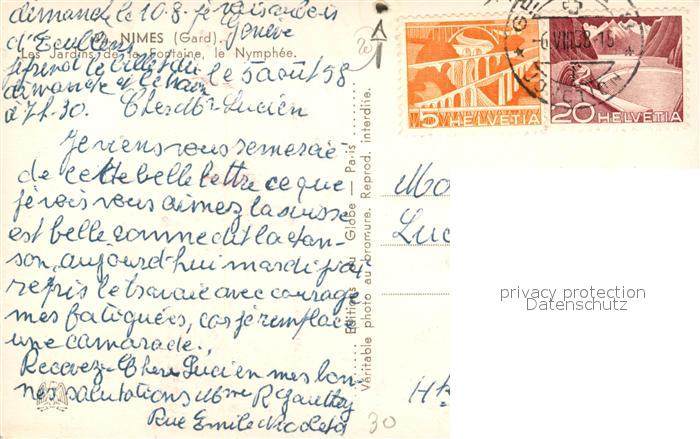 dimanche le 10.8. je vais au bois
d' Genève
NIMES (Gard).
Les Jardins de la Fontaine, le Nymphée.
le 5 août 58
dimanche
à 7h.30. Cher Mr Lucien
Je viens vous remercie
de cette belle lettre ce que
je vois vous aimez la suisse
est belle comme dit la chan-
son, aujourd'hui mardi j'ai
repris le travaie avec courage
mes fatiguées, car je remplace
une camarade.
Recevez Chere Lucien mes bon-
nes salutations Mme R Gauthey
Rue Emile Nicolet
Editions du Globe — Paris
Véritable photo au bromure. Reprod. interdite.
5 HELVETIA
20 HELVETIA
-6.VIII.58-16
Mo
Luc
privacy protection
Datenschutz
30